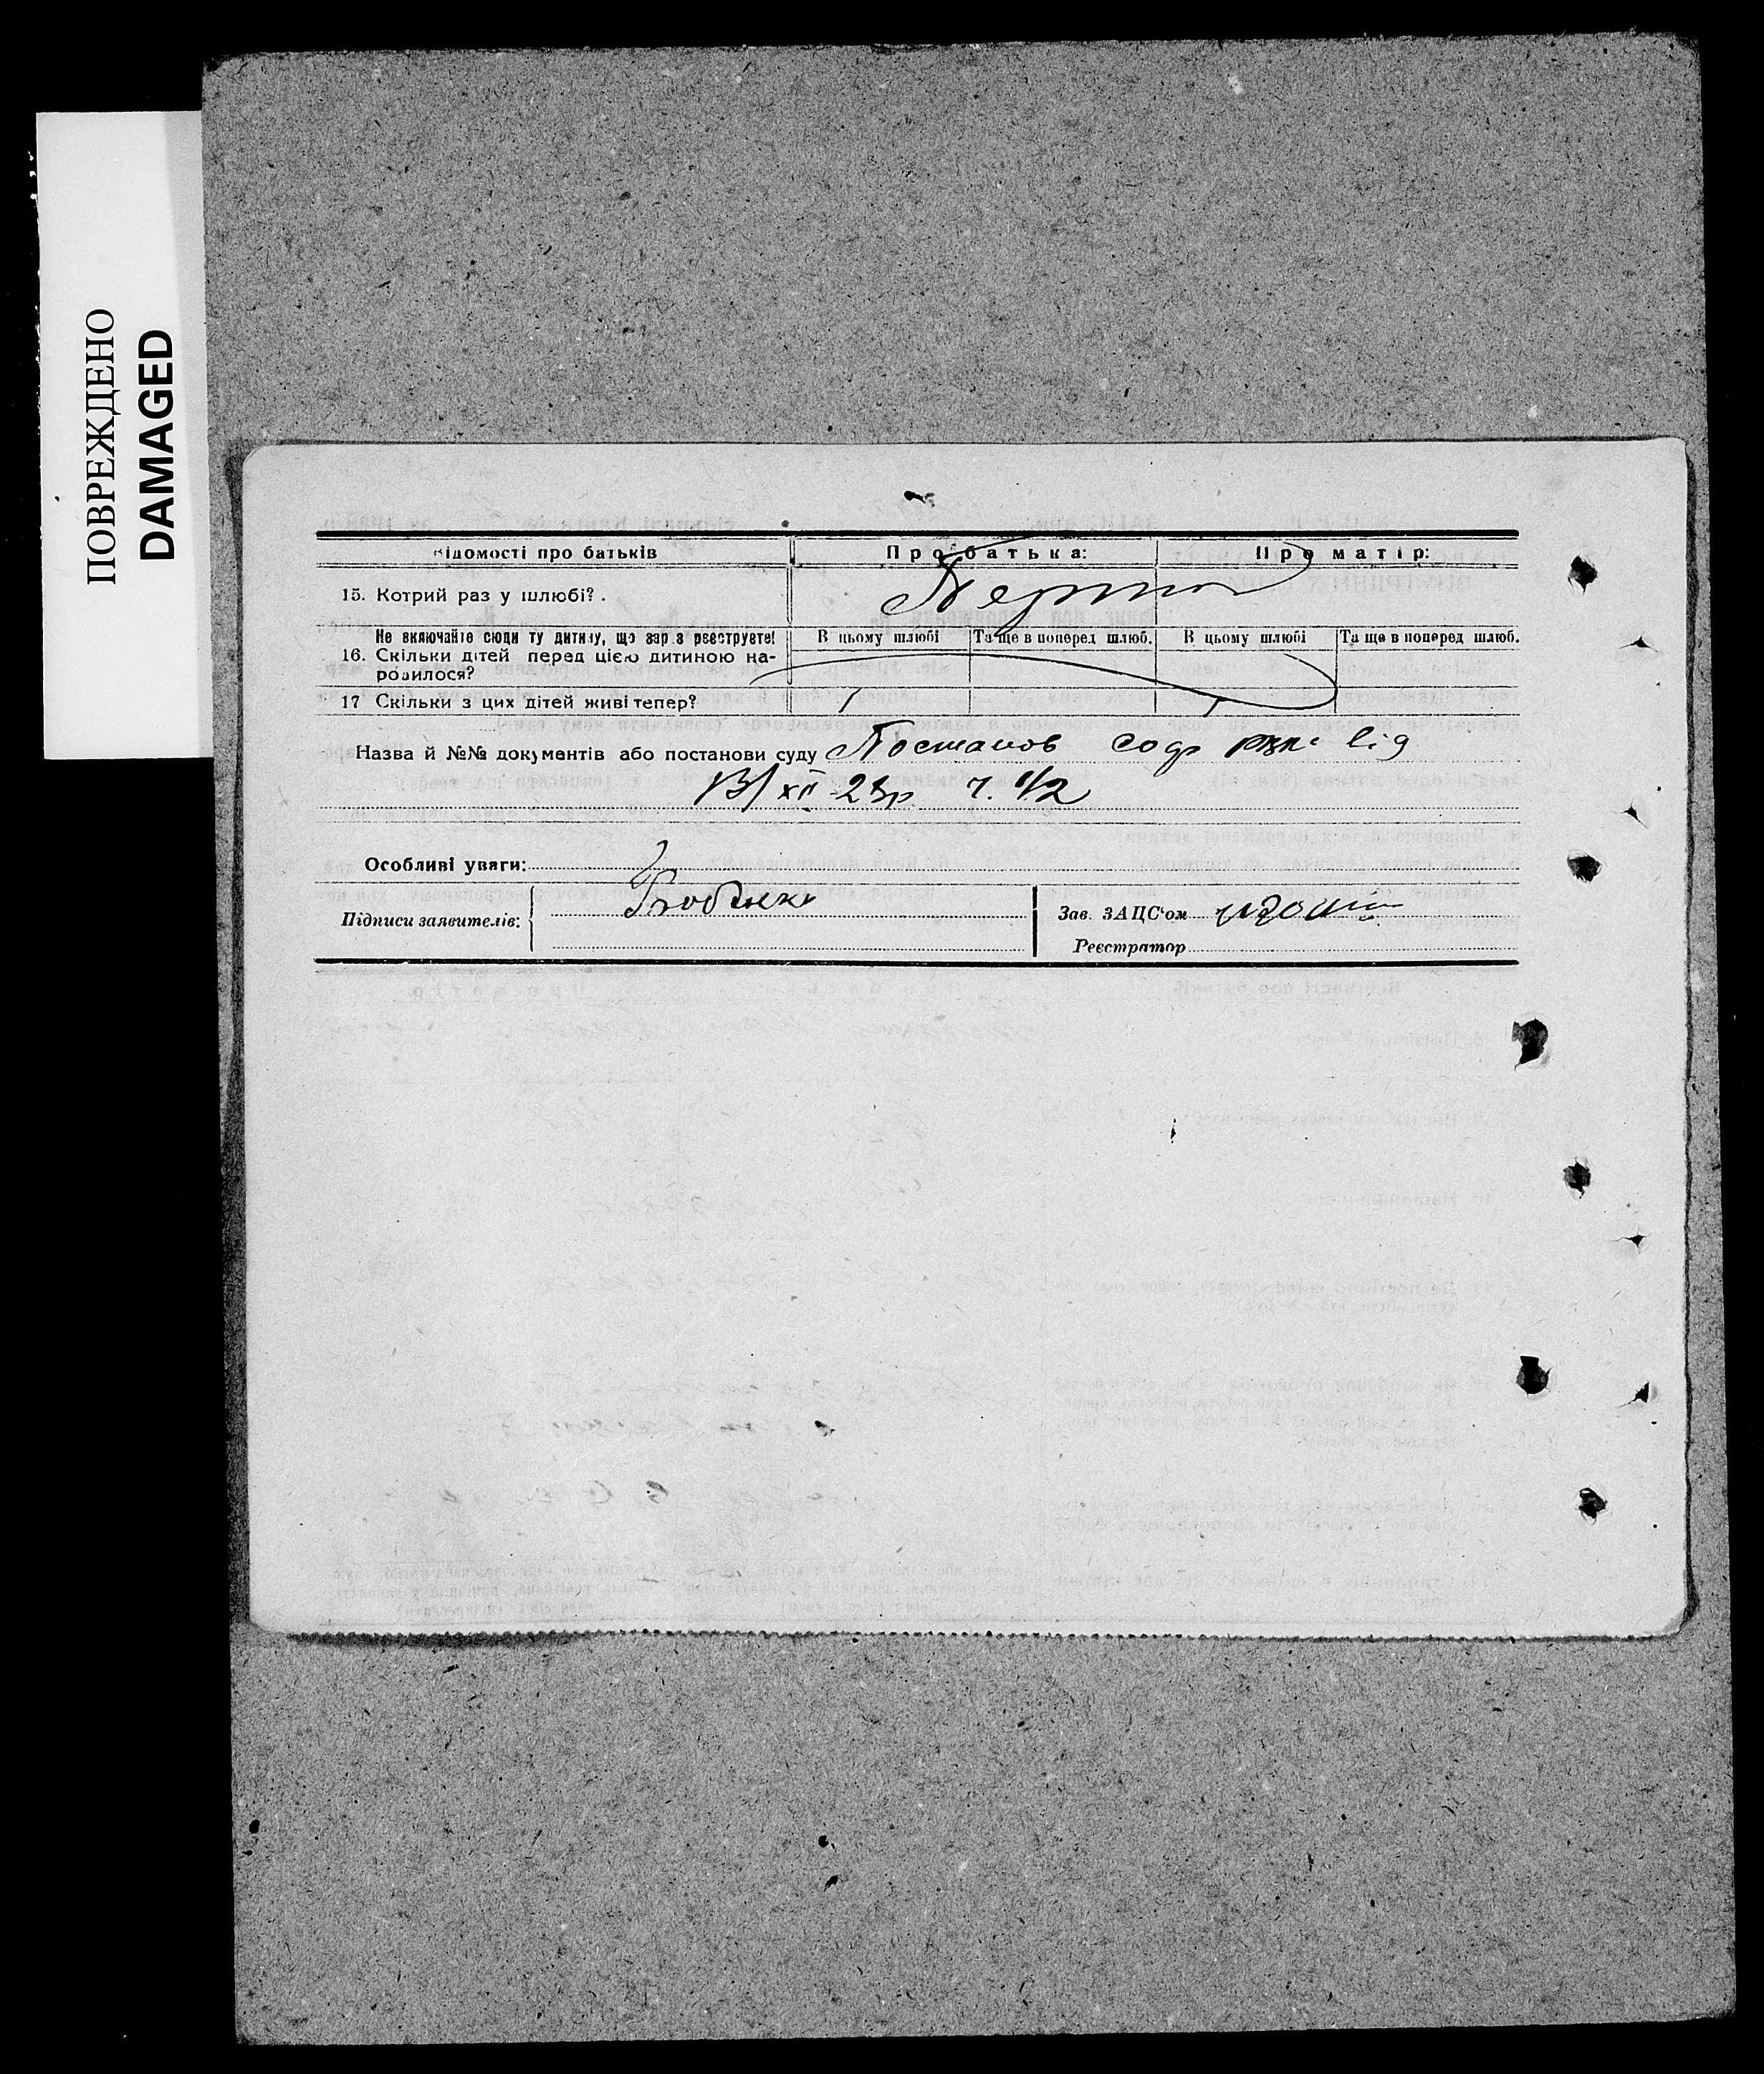 ПОВРЕЖДЕНО
DAMAGED
відомості про батьків Про батька: Про матір:
15. Котрий раз у шлюбі?.
Не включайте сюди ту дитину, що зараз реєструєте! В цьому шлюбі Та ще в поперед шлюб. В цьому шлюбі Та ще в поперед шлюб.
16. Скільки дітей перед цією дитиною на-
родилося?
17 Скільки з цих дітей живі тепер? 1 1
Назва й №№ документів або постанови суду Постанов від
13/XII
Особливі уваги:
Підписи заявителів: Зав. ЗАЦС'ом
Реєстратор